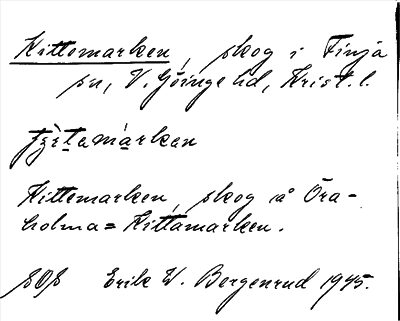 Kittomarken, skog i Finja
sn, V. Göinge hd, Krist. l.
Kittemarken, skog å Öra-
holma = Kittamarken.
SOS Erik W. Bergenrud 1945.